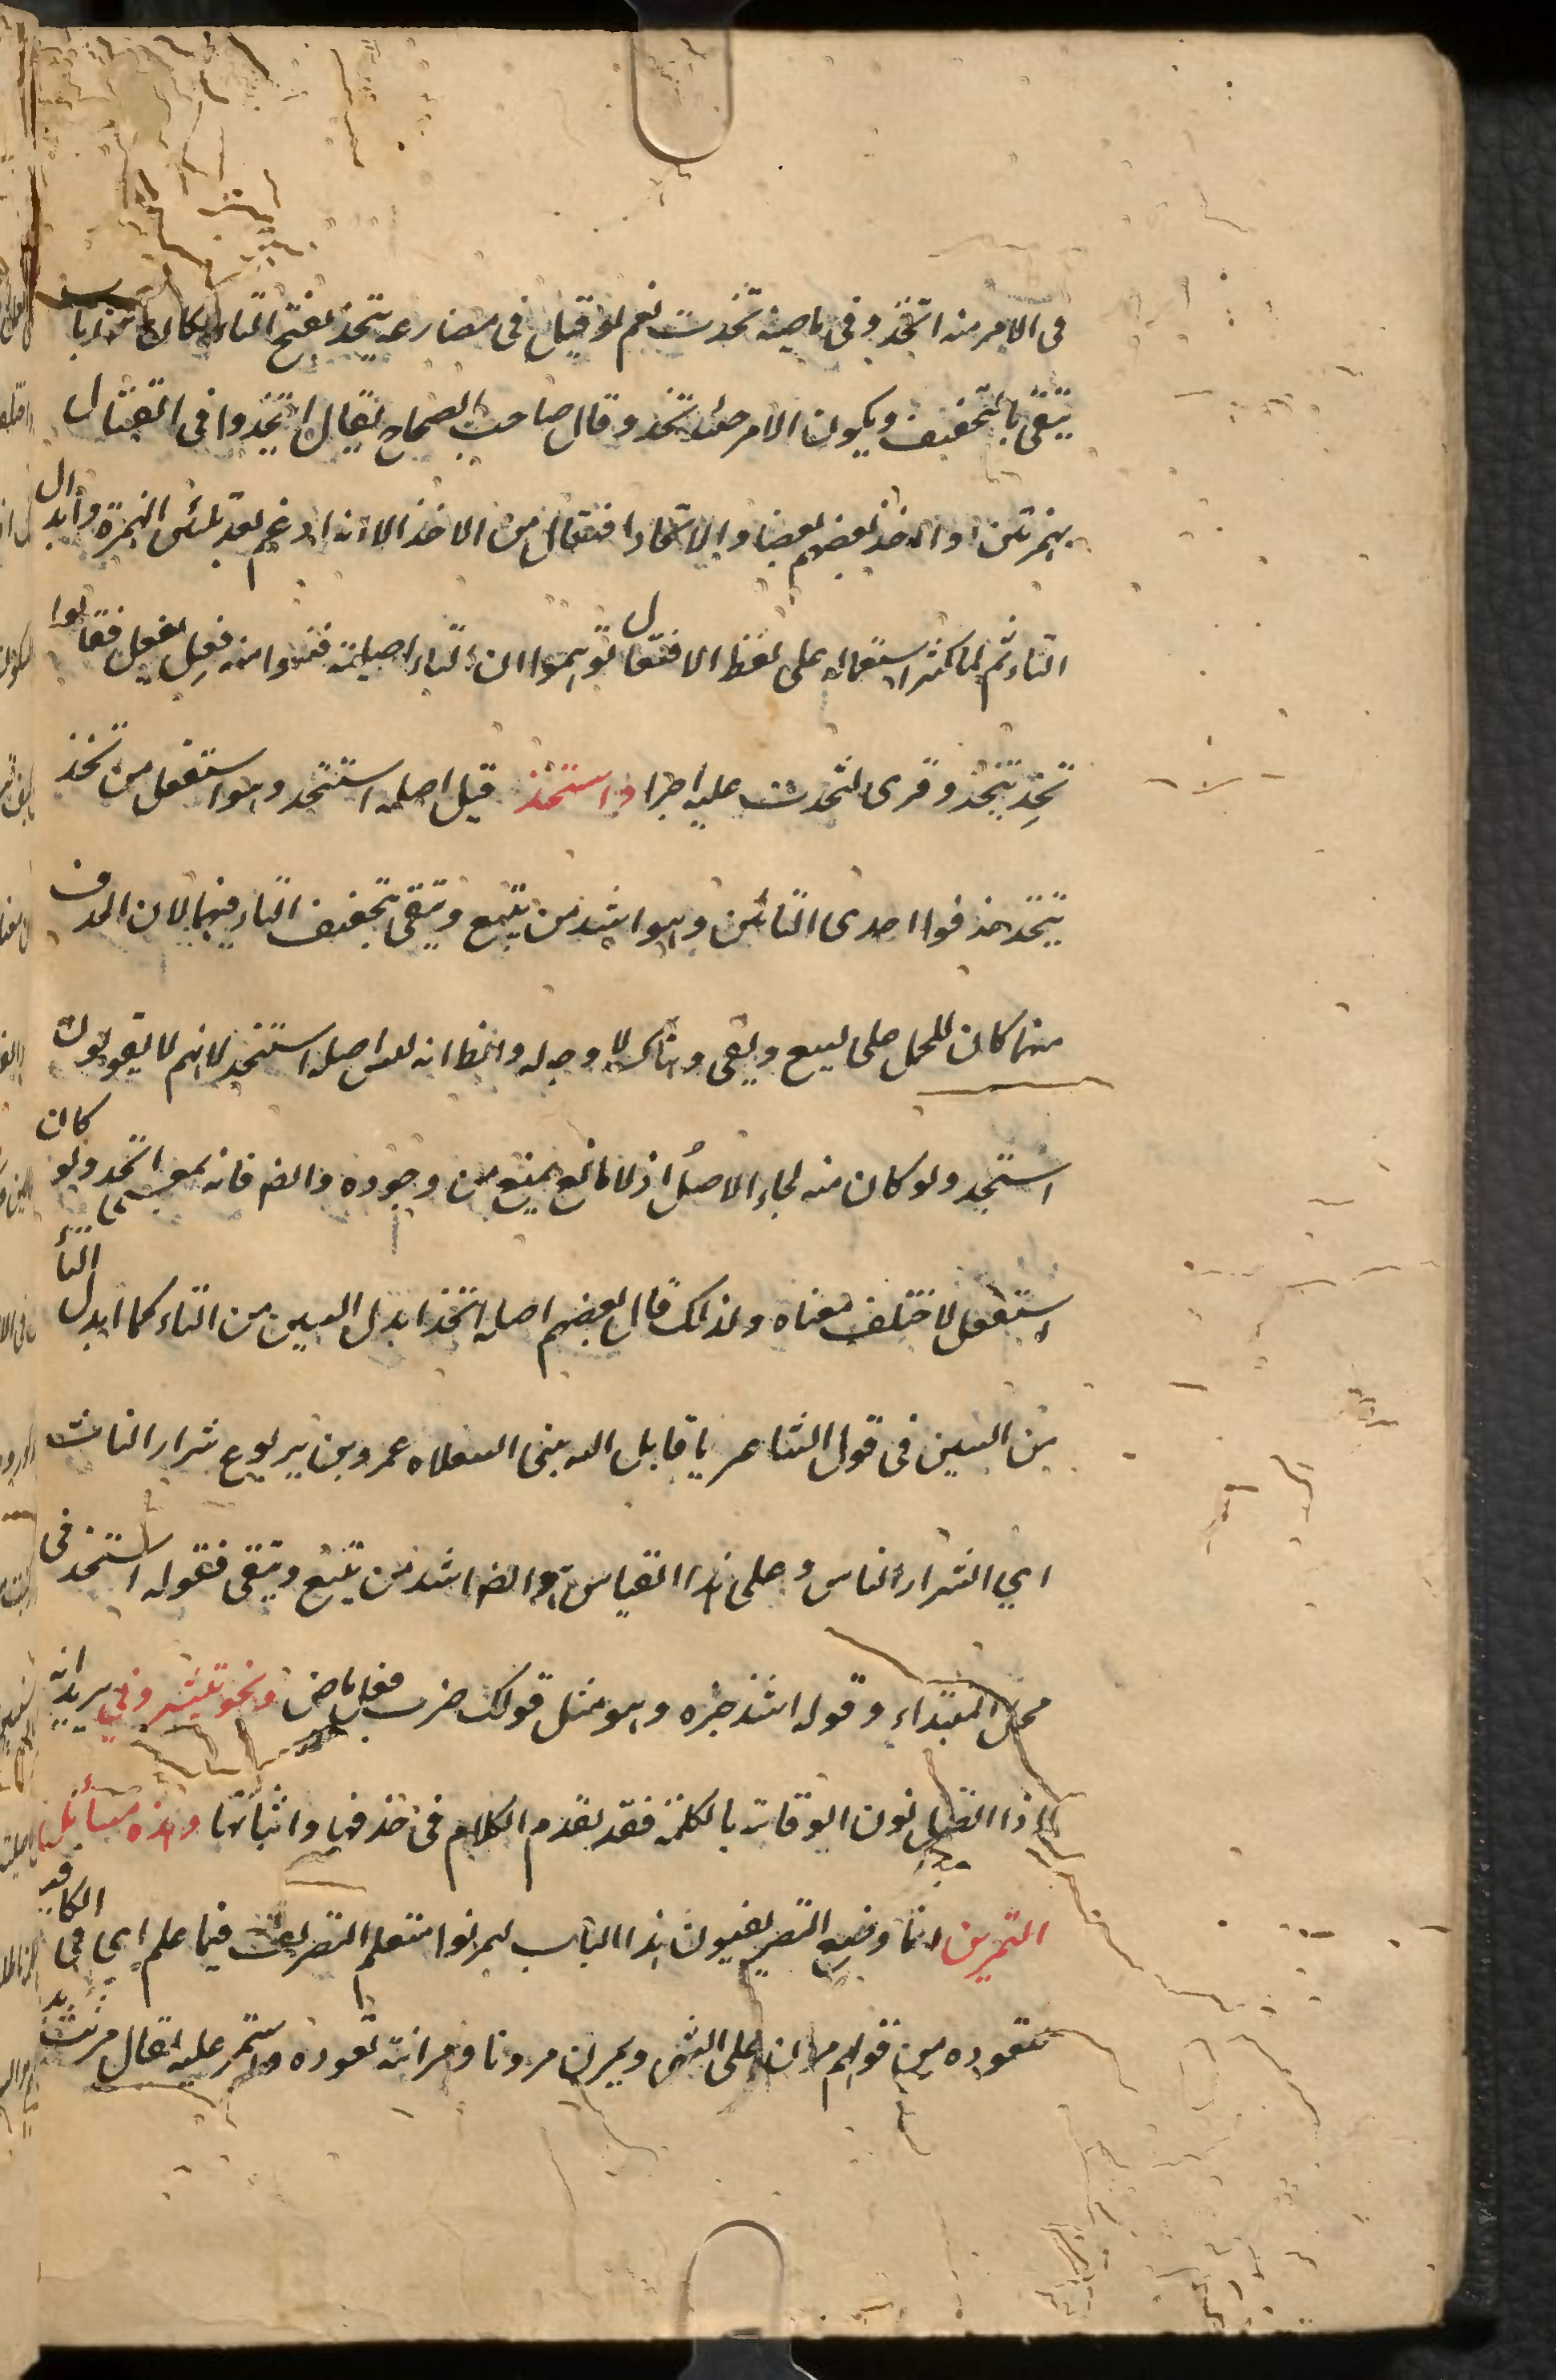 فى الامر منه اتخذ وفى ماضيه تخذت نعم لو قيل فى مضارعه يتخذ بفتح التاء لكان من باب
يتقى بالتخفيف ويكون الامر حينئذ تخذ وقال صاحب الصحاح يقال ايتخذوا فى القتال
بهمزتين اذا اخذ بعضهم بعضا والاتخاذ افتعال من الاخذ الا انه ادغم بعد تليين الهمزة وابدال
التاء ثم لما كثر استعماله على لفظ الافتعال توهموا ان التاء اصلية فبنوا منه فعِل يفعل فقالوا
تخِذ يتخذ وقرى لتخذت عليه اجرا واستخذ قيل اصله استتخذ وهو استفعل من تخذ
يتخذ حذفوا احدى التائين وهو اشذ من يتسع ويتقى بتخفيف التاء فيهما لان الحذف
منهما كان للحمل على يسع ويقى وهناك لا وجه له والظ انه ليس اصله استتخذ لانهم لا يقولون
استتخذ ولو كان منه لجاء الاصل اذ لا مانع يمنع من وجوده وايضا فانه بمعنى اتخذ ولو كان
استفعل لاختلف معناه ولذلك قال بعضهم اصله اتخذ ابدل السين من التاء كما ابدل التاء
من السين فى قول الشاعر يا قاتل الله بنى السعلاه عمرو بن يربوع شرار النات
اي اشرار الناس وعلى هذا القياس وايضا اشذ من يتسع ويتقى فقوله استخذ فى
محل المبتداء وقوله اشذ خبره وهو مثل قولك ضرب فعل ماض ونحو تبشرونى يريد انه
اذا اتصل نون الوقاية بالكلمة فقد تقدم الكلام فى حذفها واثباتها وهذه مسائل
التمرين انما وضع التصريفيون هذا الباب ليمرنوا متعلم التصريف فيما علم اي فى الكافية
تعوده من قولهم مرن على الشى ويمرن مرونا ومرانة تعوده واستمر عليه يقال مرنت يد